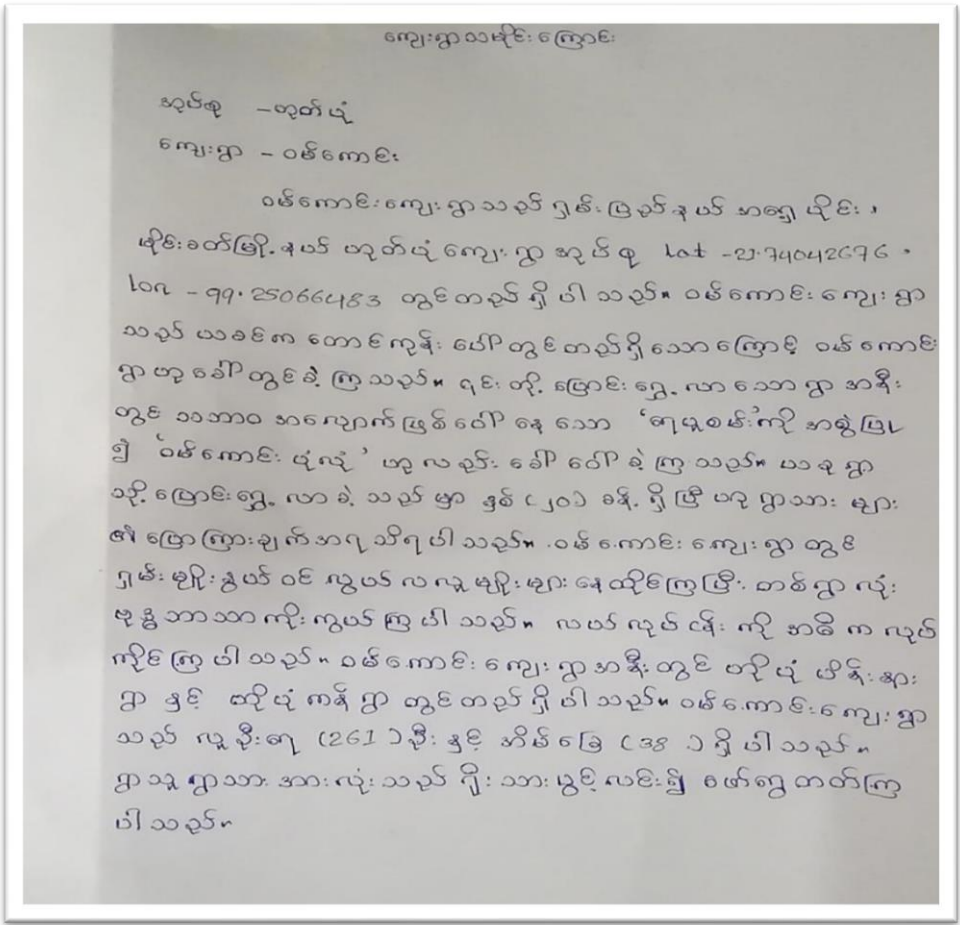 ကျေးရွာသမိုင်းကြောင်း
အုပ်စု - ဟုတ်ပုံ
ကျေးရွာ - ဝမ်ကောင်း
ဝမ်ကောင်းကျေးရွာသည် ရှမ်းပြည်နယ် အရှေ့ပိုင်း၊
မိုင်းခတ်မြို့နယ် ဟုတ်ပုံကျေးရွာအုပ်စု lat -21.74042676 ၊
lon -99.25066483 တွင်တည်ရှိပါသည်။ ဝမ်ကောင်းကျေးရွာ
သည် ယခင်က တောင်ကုန်းပေါ်တွင်တည်ရှိသောကြောင့် ဝမ်ကောင်း
ရွာဟုခေါ်တွင်ခဲ့ကြသည်။ ၎င်းတို့ ပြောင်းရွှေ့လာသောရွာအနီး
တွင် သဘာဝ အလျောက်ဖြစ်ပေါ်နေသော 'ရေပူစမ်း'ကို အစွဲပြု
၍ 'ဝမ်ကောင်းပုံလုံ' ဟုလည်းခေါ်ဝေါ်ခဲ့ကြသည်။ ယခုရွာ
သို့ ပြောင်းရွှေ့လာခဲ့သည်မှာ နှစ် (၂၀) ခန့်ရှိပြီဟု ရွာသားများ
၏ ပြောကြားချက်အရ သိရပါသည်။ ဝမ်ကောင်းကျေးရွာတွင်
ရှမ်းမျိုးနွယ်ဝင် လွယ်လလူမျိုးများနေထိုင်ကြပြီး တစ်ရွာလုံး
ဗုဒ္ဓဘာသာကိုးကွယ်ကြပါသည်။ လယ်လုပ်ငန်းကို အဓိကလုပ်
ကိုင်ကြပါသည်။ ဝမ်ကောင်းကျေးရွာအနီးတွင် ဟိုပုံ ဟိန်းနား
ရွာ နှင့် ဟိုပုံကန်ရွာ တွင်တည်ရှိပါသည်။ ဝမ်ကောင်းကျေးရွာ
သည် လူဦးရေ (261) ဦး နှင့် အိမ်ခြေ (38) ရှိပါသည်။
ရွာသူရွာသားအားလုံးသည် ရိုးသားပွင့်လင်း၍ ဖော်ရွေတတ်ကြ
ပါသည်။